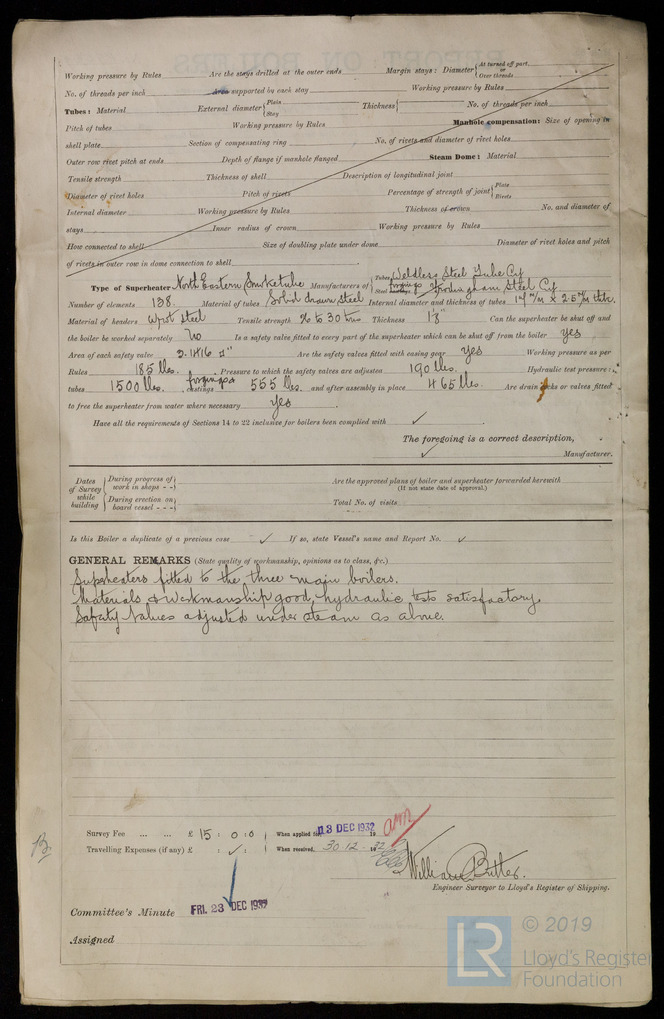 Working pressure by Rules Are the stays drilled at the outer ends Margin stays: Diameter { At turned off part, or Over threads
No. of threads per inch Area supported by each stay Working pressure by Rules
Tubes: Material External diameter { Plain Stay Thickness { No. of threads per inch
Pitch of tubes Working pressure by Rules Manhole compensation: Size of opening in
shell plate Section of compensating ring No. of rivets and diameter of rivet holes
Outer row rivet pitch at ends Depth of flange if manhole flanged Steam Dome: Material
Tensile strength Thickness of shell Description of longitudinal joint
Diameter of rivet holes Pitch of rivets Percentage of strength of joint { Plate Rivets
Internal diameter Working pressure by Rules Thickness of crown No. and diameter of
stays Inner radius of crown Working pressure by Rules
How connected to shell Size of doubling plate under dome Diameter of rivet holes and pitch
of rivets in outer row in dome connection to shell
Type of Superheater North Eastern Smoketube Manufacturers of { Tubes Weldless Steel Tube Cy
Steel forgings Frodingham Steel Cy.
Number of elements 138. Material of tubes Solid drawn steel Internal diameter and thickness of tubes 17 m/m x 2.5 m/m thick.
Material of headers Wrot steel Tensile strength 26 to 30 tons Thickness 1 1/8" Can the superheater be shut off and
the boiler be worked separately No Is a safety valve fitted to every part of the superheater which can be shut off from the boiler yes
Area of each safety valve 2.1416 □" Are the safety valves fitted with easing gear yes Working pressure as per
Rules 185 lbs. Pressure to which the safety valves are adjusted 190 lbs. Hydraulic test pressure:
tubes 1500 lbs. forgings castings 555 lbs. and after assembly in place 465 lbs. Are drain cocks or valves fitted
to free the superheater from water where necessary Yes
Have all the requirements of Sections 14 to 22 inclusive for boilers been complied with ✓
The foregoing is a correct description,
✓ Manufacturer.
Dates of Survey while building { During progress of work in shops - - Are the approved plans of boiler and superheater forwarded herewith
(If not state date of approval.)
During erection on board vessel - - - Total No. of visits
Is this Boiler a duplicate of a previous case ✓ If so, state Vessel's name and Report No. ✓
GENERAL REMARKS (State quality of workmanship, opinions as to class, &c.)
Superheaters fitted to the three main boilers.
Materials & workmanship good, hydraulic tests satisfactory.
Safety valves adjusted under steam as above.
Survey Fee ... ... £ 15 : 0 : 0 When applied for, 13 DEC 1932 19
Travelling Expenses (if any) £ : ✓ : When received, 30.12. 19 32
William Butler.
Engineer Surveyor to Lloyd's Register of Shipping.
Committee's Minute FRI. 23 DEC 1932
Assigned
LR © 2019
Lloyd's Register
Foundation